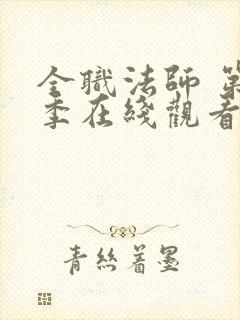 全職法師 第
季在綫觀看
青絲著墨